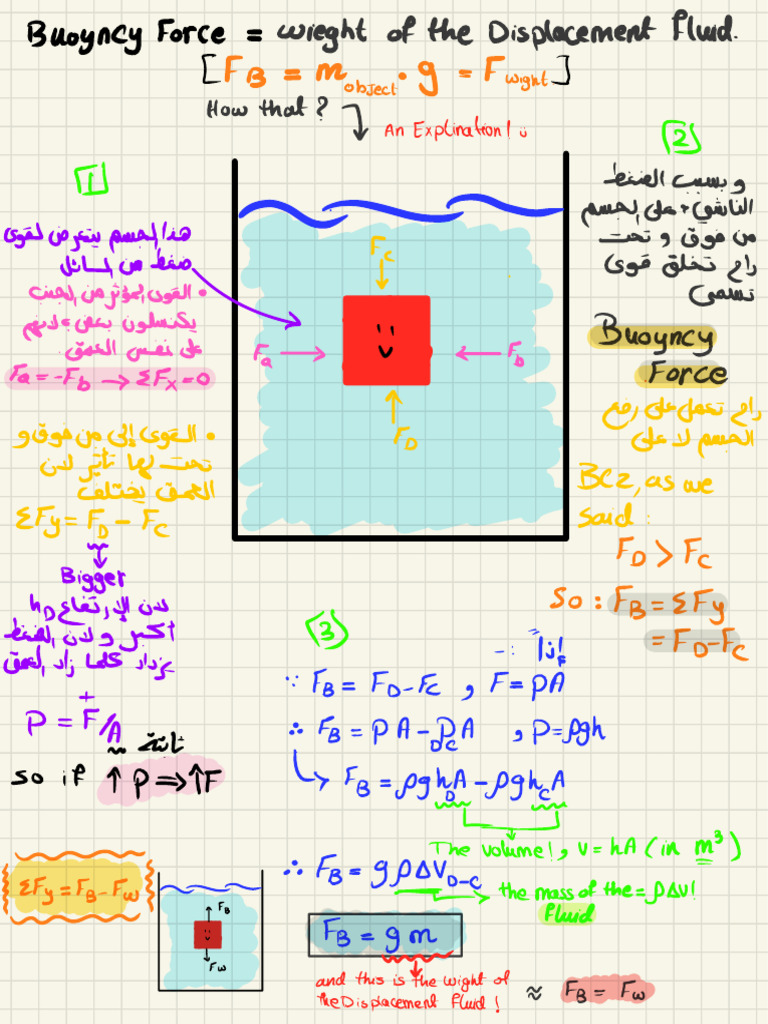 Buoyncy Force = wieght of the Displacement Fluid.
[F_B = m_object · g = F_wight]
How that?
An Explination! ü
[1]
هذا الجسم يتعرض لقوى
ضغط من السائل
• القوى المؤثر من الجنب
يكنسلون بعض، لانهم
على نفس العمق.
Fa = -F_b → ΣF_x = 0
• القوى إلي من فوق و
تحت لها تأثير لان
العمق يختلف
ΣFy = F_D - F_C
Bigger
لان الإرتفاع h_D
أكبر و لان الضغط
يزداد كلما زاد العمق
+
P = F/A
ثابتة
so if ↑ P ⇒ ↑F
F_C
F_a
F_b
F_D
[2]
و بسبب الضغط
الناشيء على الجسم
من فوق و تحت
راح تخلق قوى
تسمى
Buoyncy
Force
راح تعمل على رفع
الجسم لا على
Bcz, as we
said:
F_D > F_C
So: F_B = ΣFy
= F_D - F_C
[3]
إذاً :-
∵ F_B = F_D - F_C , F = PA
∴ F_B = P_D A - P_C A , P = ρgh
↳ F_B = ρgh_D A - ρgh_C A
The volume!, v = hA (in m³)
∴ F_B = gρΔV_D-C
the mass of the = ρΔv!
fluid
F_B = g m
and this is the wight of
the Displacement fluid!
≈ F_B = F_w
ΣFy = F_B - F_w
F_B
F_w